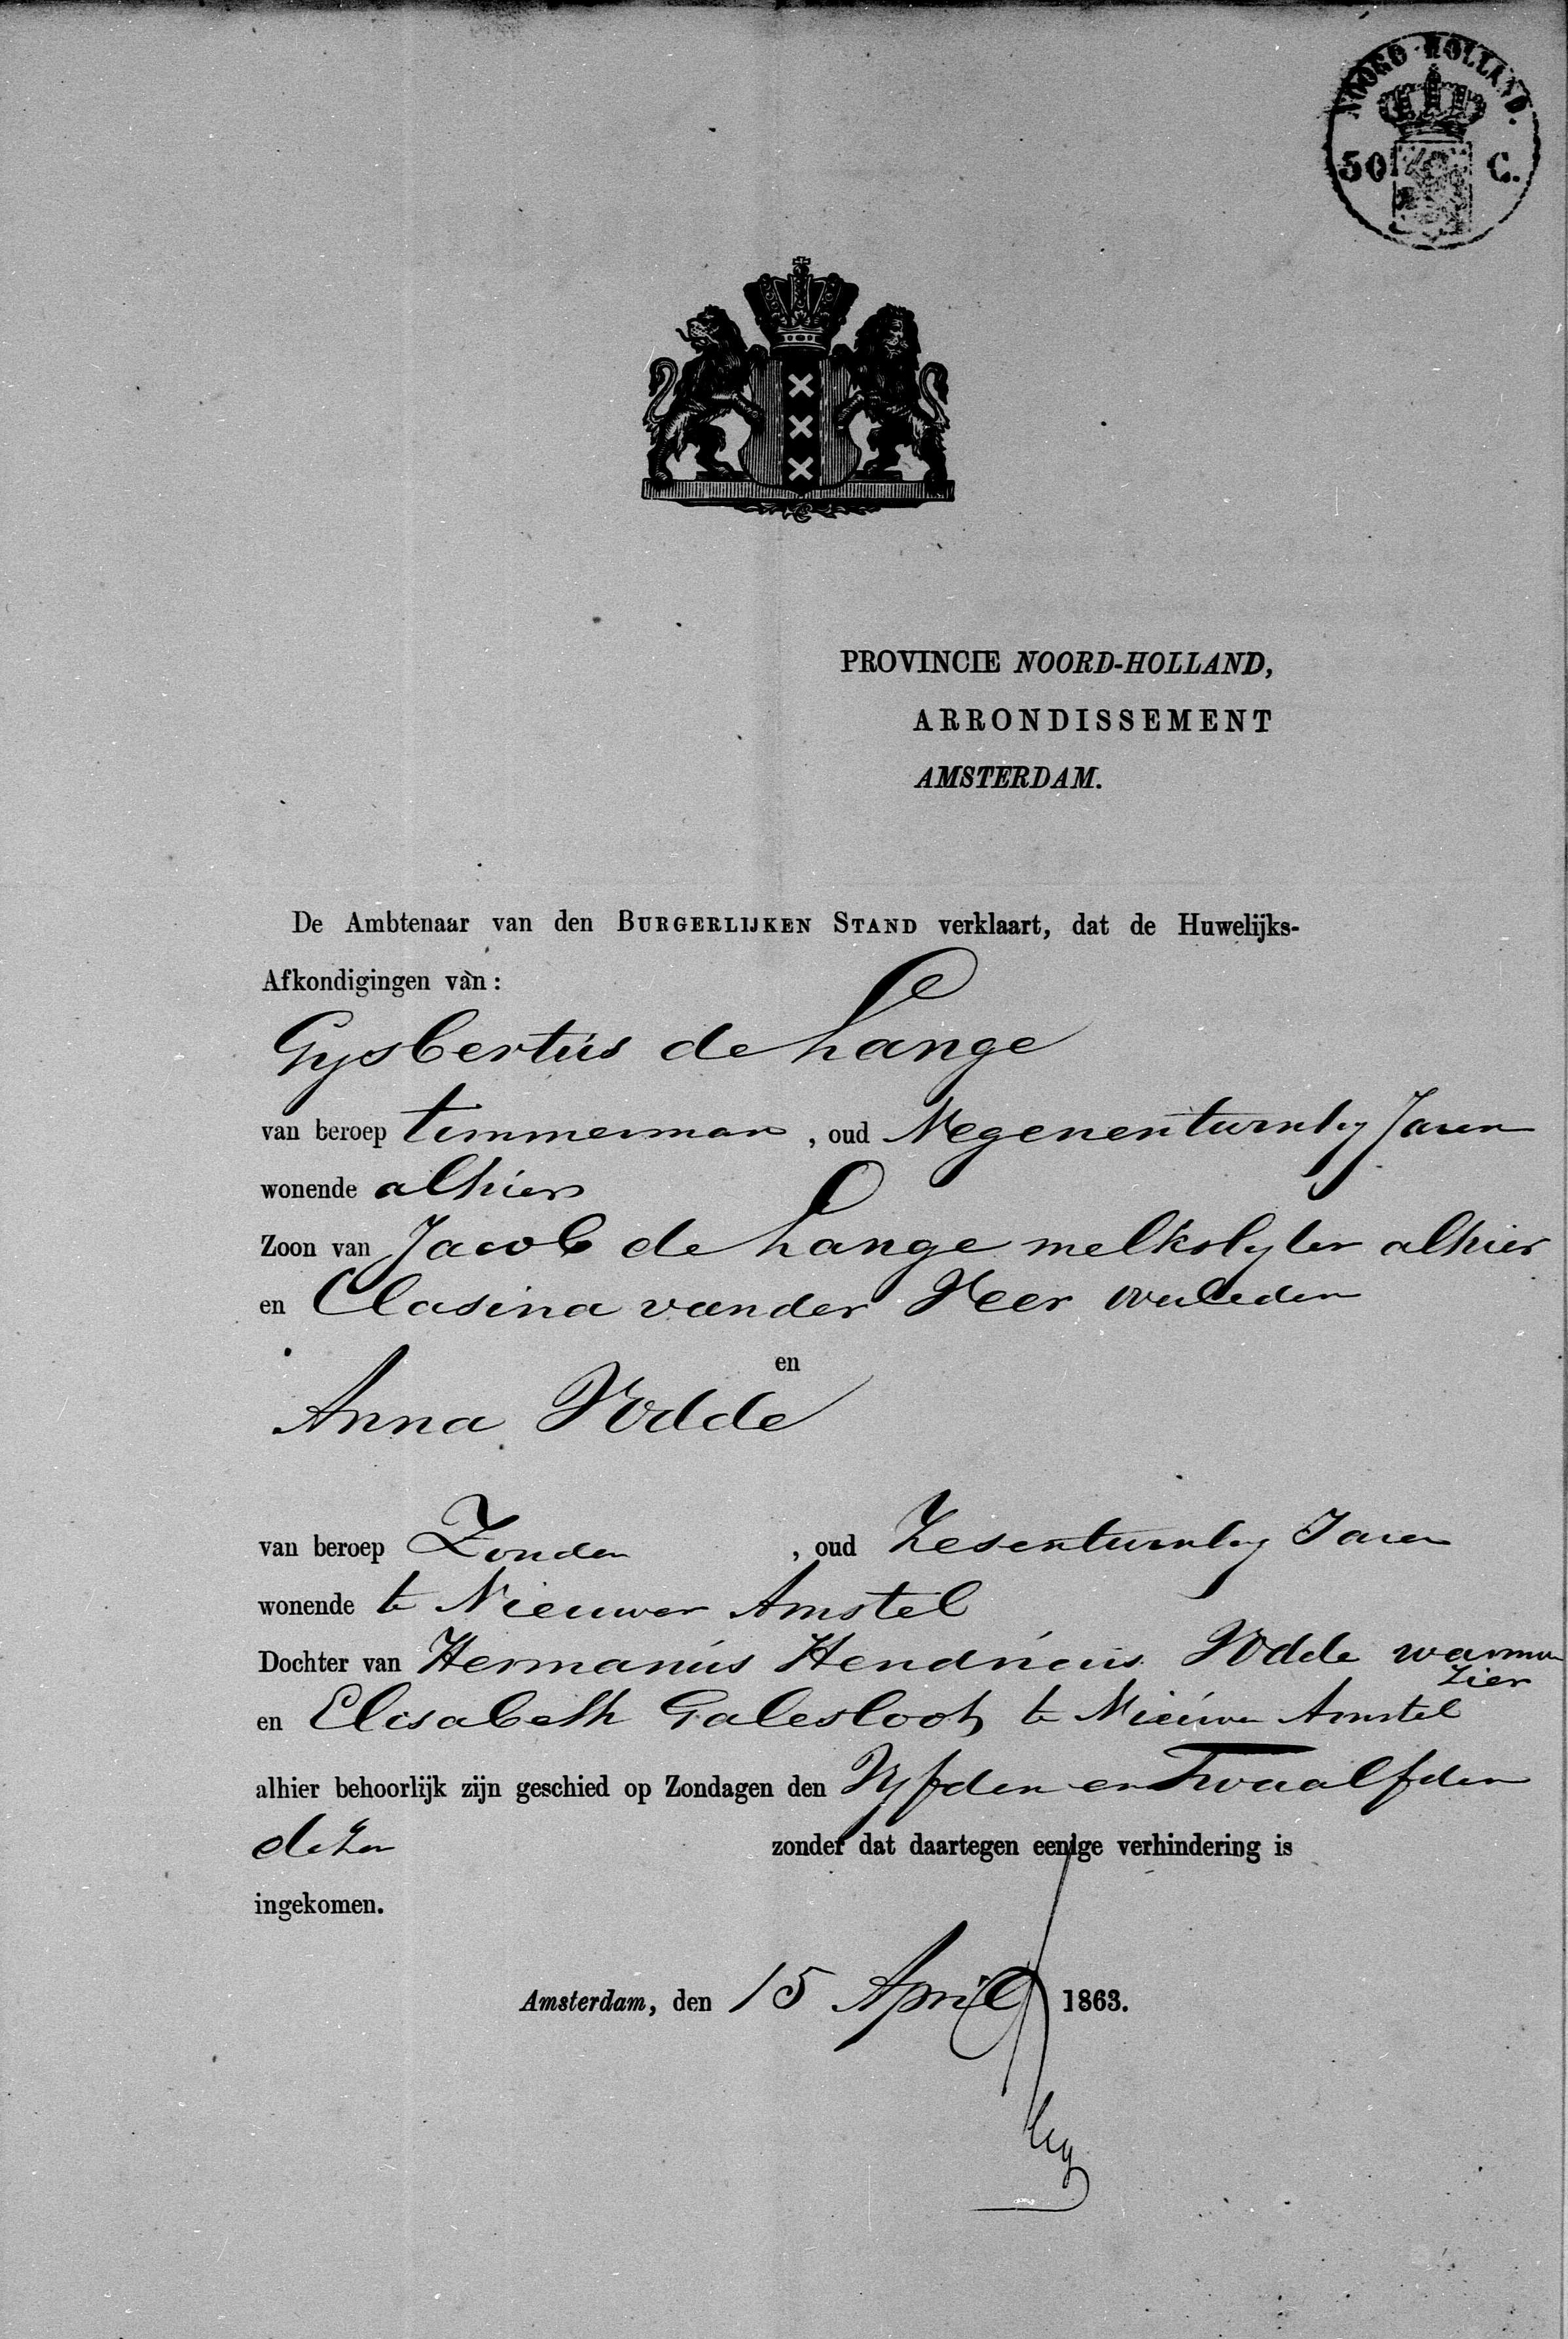 NOORD-HOLLAND.
50 C.
PROVINCIE NOORD-HOLLAND,
ARRONDISSEMENT
AMSTERDAM.
De Ambtenaar van den BURGERLIJKEN STAND verklaart, dat de Huwelijks-
Afkondigingen van:
Gysbertus de Lange
van beroep timmerman, oud Negenentwintig Jaren
wonende alhier
Zoon van Jacob de Lange melkslyter alhier
en Clasina van der Veer overleden
en
Anna Vodde
van beroep Zonder, oud Zesentwintig Jaren
wonende te Nieuwer Amstel
Dochter van Hermanus Hendricus Vodde warmoe
zier
en Elisabeth Galesloot te Nieuwer Amstel
alhier behoorlijk zijn geschied op Zondagen den Vyfden en Twaalfden
dezer zonder dat daartegen eenige verhindering is
ingekomen.
Amsterdam, den 15 April 1863.